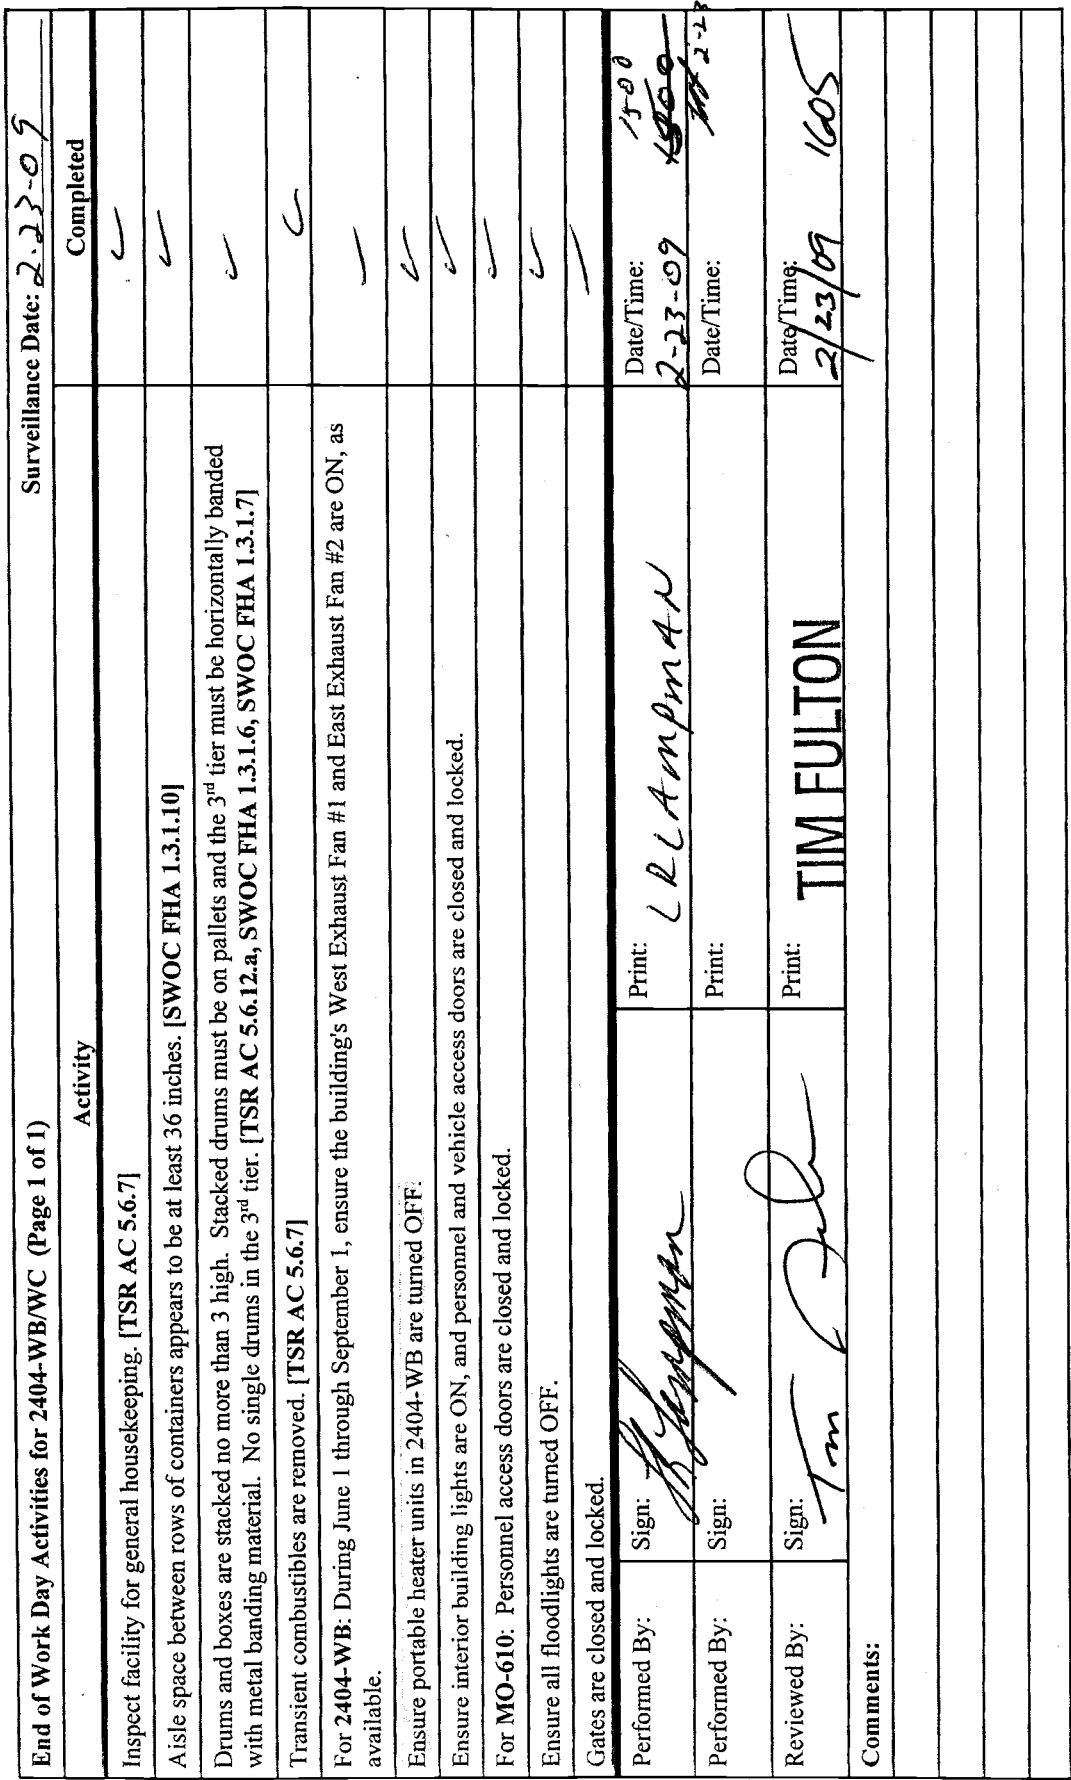 End of Work Day Activities for 2404-WB/WC (Page 1 of 1) Surveillance Date: 2-23-09
Activity Completed
Inspect facility for general housekeeping. [TSR AC 5.6.7] ✓
Aisle space between rows of containers appears to be at least 36 inches. [SWOC FHA 1.3.1.10] ✓
Drums and boxes are stacked no more than 3 high. Stacked drums must be on pallets and the 3rd tier must be horizontally banded
with metal banding material. No single drums in the 3rd tier. [TSR AC 5.6.12.a, SWOC FHA 1.3.1.6, SWOC FHA 1.3.1.7] ✓
Transient combustibles are removed. [TSR AC 5.6.7] ✓
For 2404-WB: During June 1 through September 1, ensure the building's West Exhaust Fan #1 and East Exhaust Fan #2 are ON, as
available. —
Ensure portable heater units in 2404-WB are turned OFF. ✓
Ensure interior building lights are ON, and personnel and vehicle access doors are closed and locked. ✓
For MO-610: Personnel access doors are closed and locked. ✓
Ensure all floodlights are turned OFF. ✓
Gates are closed and locked. —
Performed By: Sign: Print: LRLAMPMAN Date/Time: 2-23-09 1500
2-23
Performed By: Sign: Print: Date/Time:
Reviewed By: Sign: Tim Print: TIM FULTON Date/Time: 2/23/09 1605
Comments: